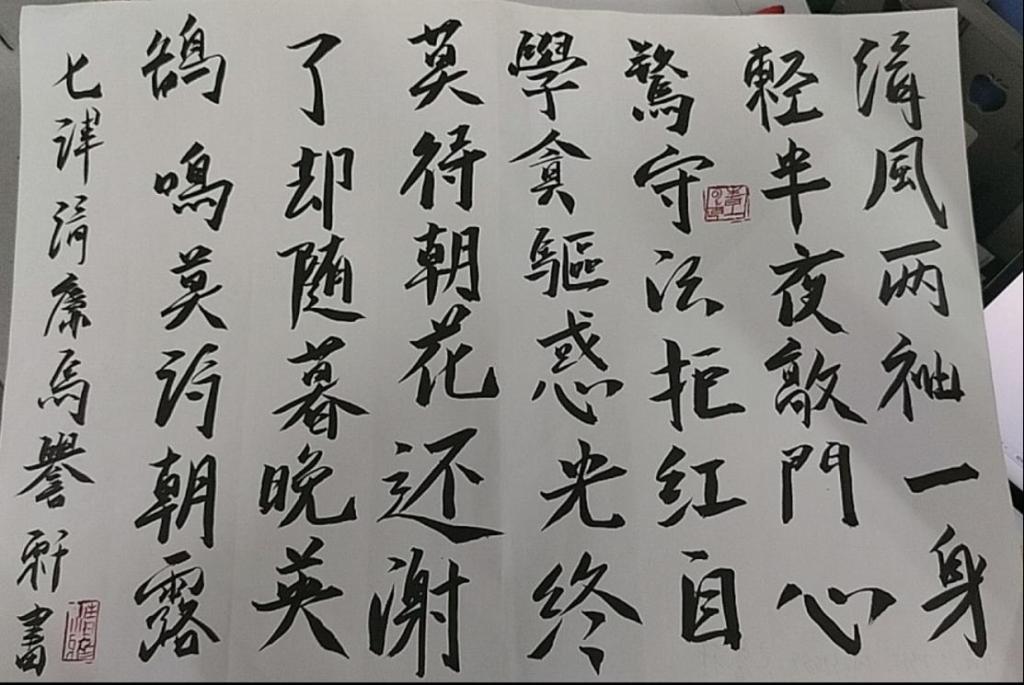 清風两袖一身
輕半夜敲門心
驚守法拒红自
學貪驅惑光终
莫待朝花还谢
了却随暮晚英
鵠鳴莫訝朝露
七律清廉馬譽軒書